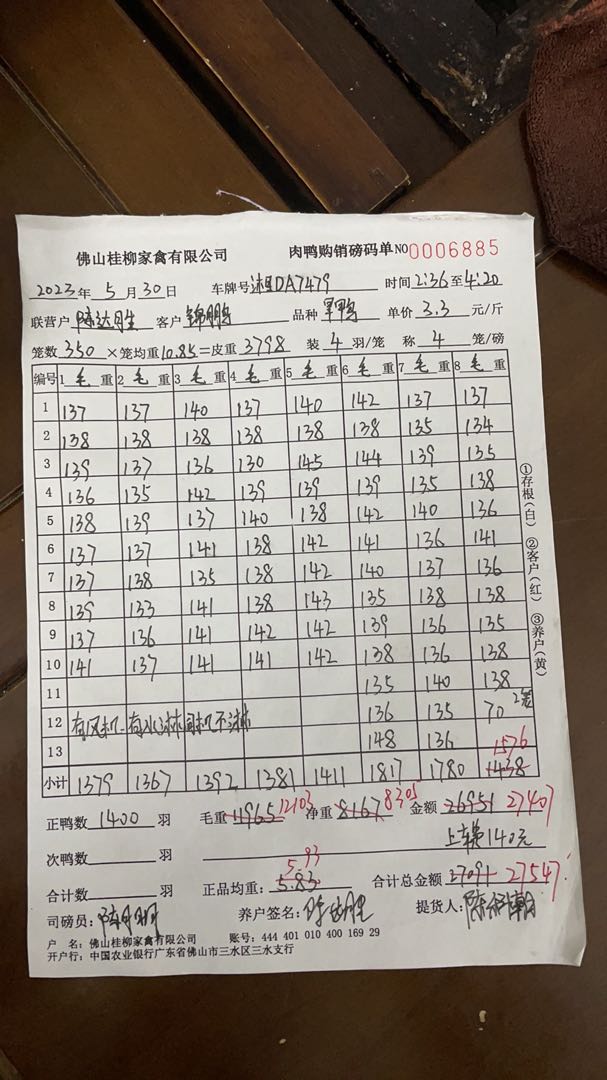 佛山桂柳家禽有限公司 肉鸭购销磅码单 NO 0006885
2023年 5月30日 车牌号 湘DA7479 时间 2:36 至 4:20
联营户 陈达胜 客户 锦鹏 品种 单价 3.3 元/斤
笼数 350 ×笼均重 10.85 =皮重 3798 装 4 羽/笼 称 4 笼/磅
编号 1 毛 重 2 毛 重 3 毛 重 4 毛 重 5 毛 重 6 毛 重 7 毛 重 8 毛 重
1 137 137 140 137 140 142 137 137
2 138 138 138 138 138 138 135 134
3 139 137 136 130 145 144 139 135
4 136 135 142 139 139 139 135 138
5 138 139 137 140 138 142 140 136
6 137 137 141 138 142 141 136 141
7 137 138 135 138 142 140 137 136
8 139 133 141 138 143 135 138 138
9 137 136 141 142 142 139 136 135
10 141 137 141 141 142 138 136 138
11 135 140 138
12 有风机 有水淋 司机不淋 136 135 70 2笼
13 148 136 1576
小计 1379 1367 1392 1381 1411 1817 1780 1438
正鸭数 1400 羽 毛重 11965 12103 净重 8167 8305 金额 26951 27407
上车费140元
次鸭数 羽
5.93
合计数 羽 正品均重: 5.83 合计总金额 27091 27547
司磅员: 养户签名: 陈达胜 提货人:
户 名: 佛山桂柳家禽有限公司 账号: 444 401 010 400 169 29
开户行: 中国农业银行广东省佛山市三水区三水支行
①存根(白) ②客户(红) ③养户(黄)